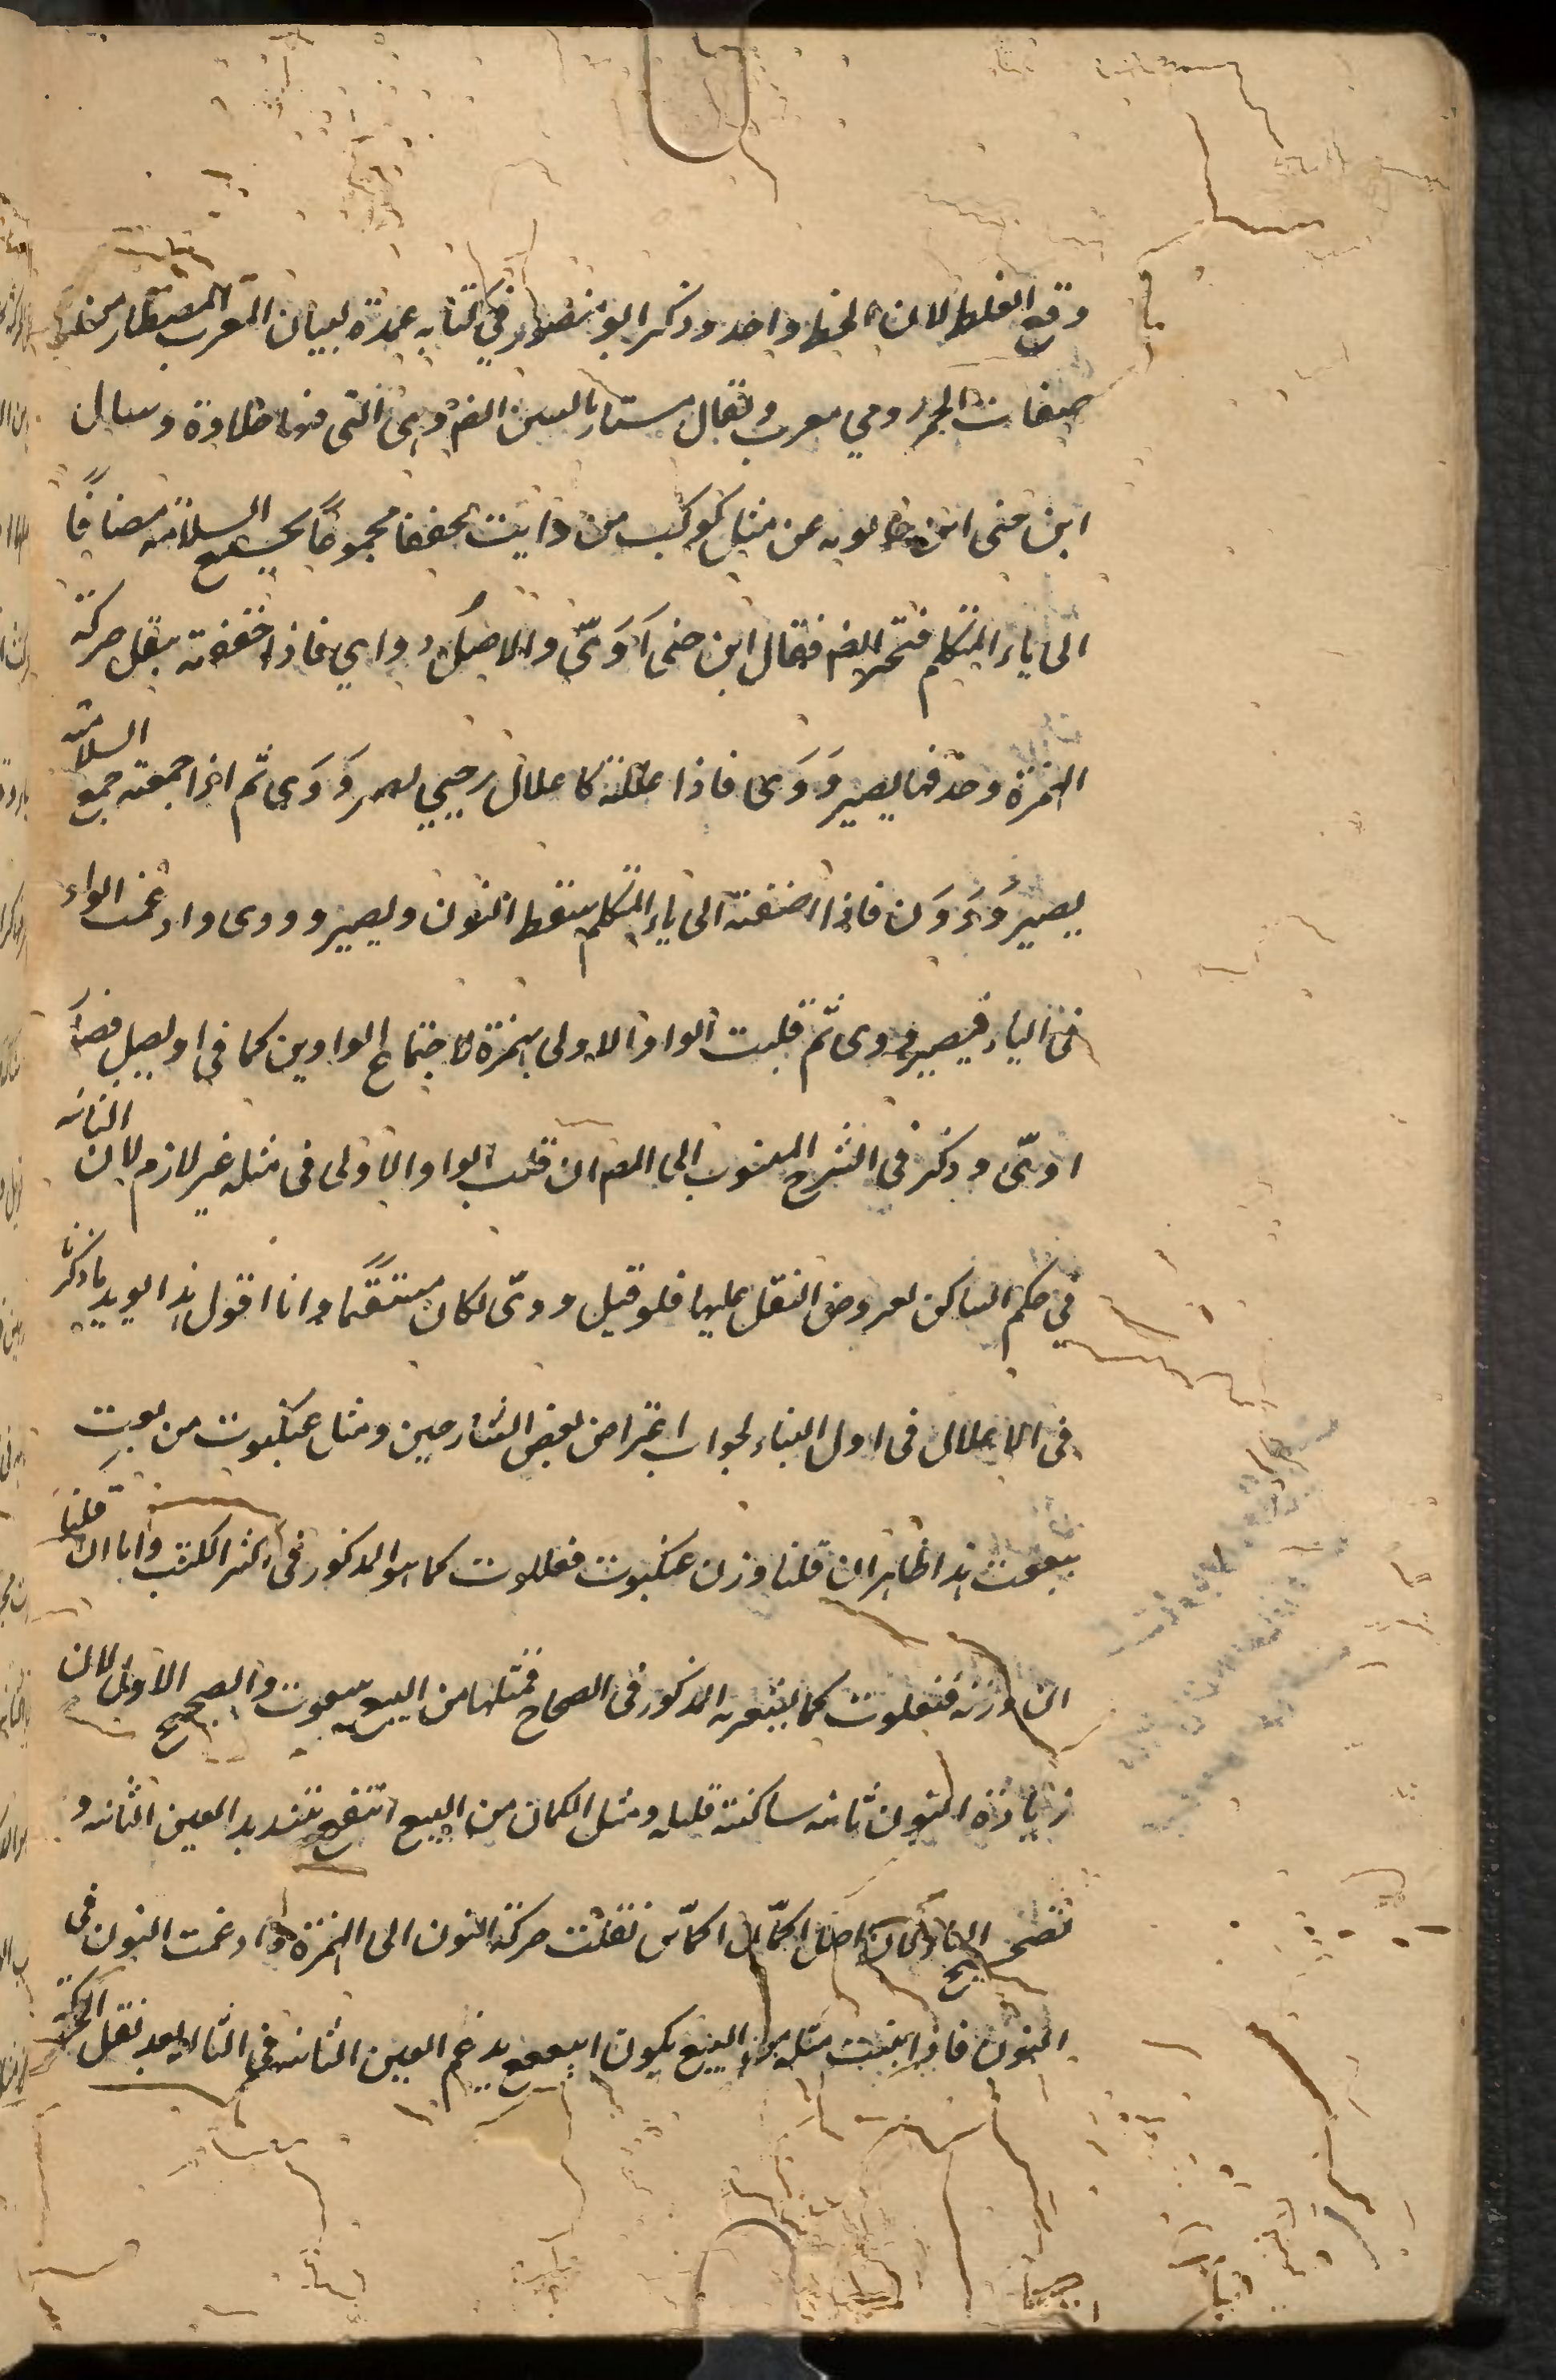 وقع الغلط لان الخط واحد وذكر ابو منصور في كتابه عمدة لبيان المعرب المصطار من
صفات الخمر رومي معرب ويقال مستار بالسين ايضا وهي التي فيها حلاوة وسال
ابن جنى ابن خالويه عن مثل كوكب من وايت مخففا مجموعًا بجمع السلامة مضافًا
الى ياء المتكلم فتحير ايضا فقال ابن جنى اَوَىّ والاصل ووأي فاذا خففته بنقل حركة
الهمزة وحذفها يصير وَوَى فاذا اعللته كاعلال رحيي يصير وَوَى ثم اذا جمعته جمع السلامة
يصير وَوَوْن فاذا اضفته الى ياء المتكلم سقط النون ويصير وووى وادغمت الواو
فى الياء فيصير ووى ثم قلبت الواو الاولى همزة لاجتماع الواوين كما في اويصل فصار
اوىّ وذكر فى الشرح المنسوب الى المص ان قلب الواو الاولى فى مثله غير لازم لان الثانية
في حكم الساكن لعروض النقل عليها فلو قيل ووىّ لكان مستقيمًا وانا اقول هذا يويد ما ذكرنا
فى الاعلال فى اول البناء لجواب اعتراض بعض الشارحين ومثل عنكبوت من بعت
بيععوت هذا ظاهر ان قلنا وزن عنكبوت فعللوت كما هو المذكور فى اكثر الكتب واما ان قلنا
ان وزنه فنعلوت كما يشعر به المذكور فى الصحاح فمثلها من البيع بنيعوت والصحيح الاول لان
زيادة النون ثانية ساكنة قليله ومثل اطمان من البيع ابيعع بتشديد العين الثانية و
تصحيح الياء لان اصل اطمأن اطمأنن نقلت حركة النون الى الهمزة وادغمت النون في
النون فاذا بنيت مثله من البيع يكون ابيععع يدغم العين الثانية في الثالثة بعد نقل الحركة